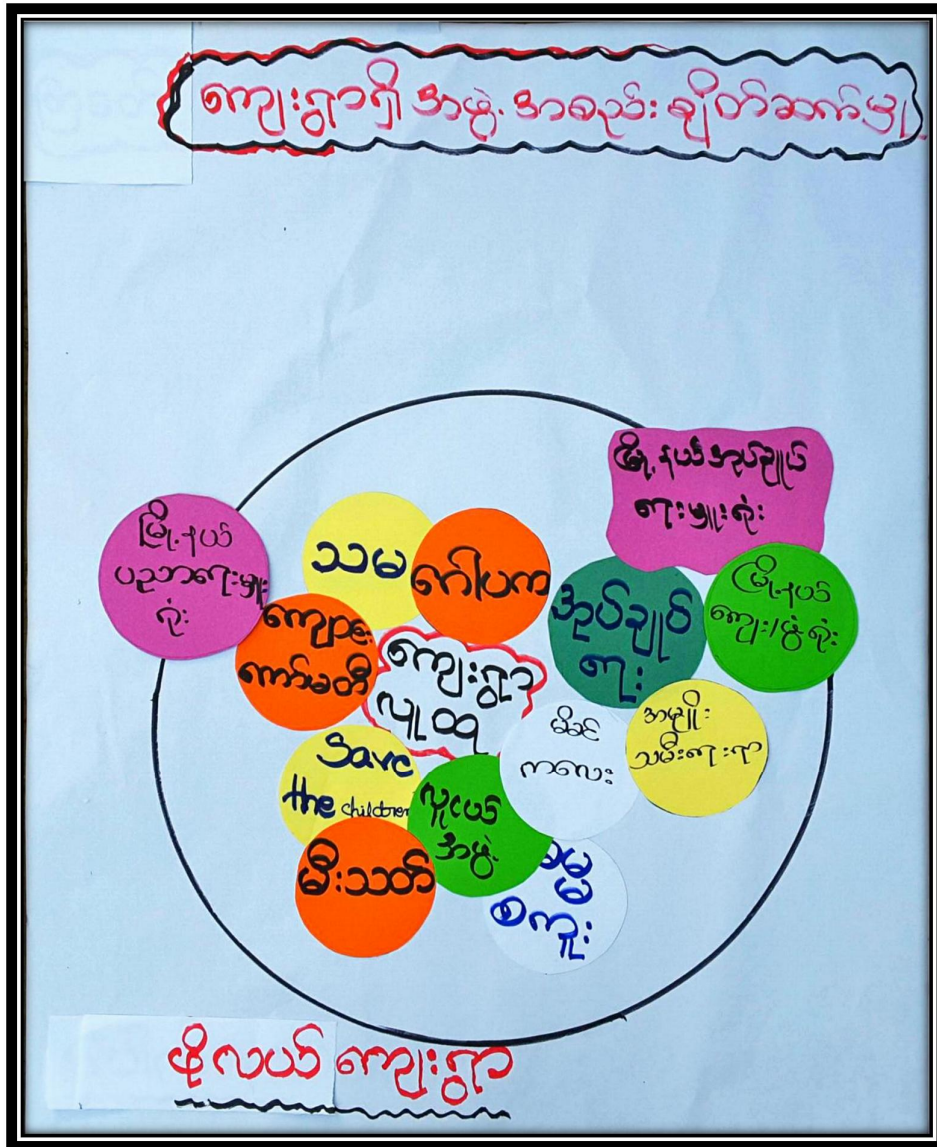 ကျေးရွာရှိ အဖွဲ့အစည်း ချိတ်ဆက်မှု
မြို့နယ်အုပ်ချုပ်
ရေးမှူးရုံး
မြို့နယ်
ပညာရေးမှူး
ရုံး
သမ
ဂေါပက
အုပ်ချုပ်
ရေး
မြို့နယ်
ကျေး/ဖွံ့ရုံး
ကျောင်း
ကော်မတီ
ကျေးရွာ
လူထု
မိခင်
ကလေး
အမျိုး
သမီးရေးရာ
Save
the children
လူငယ်
အဖွဲ့
မီးသတ်
ဓမ္မ
စကူး
ဖိုလယ် ကျေးရွာ